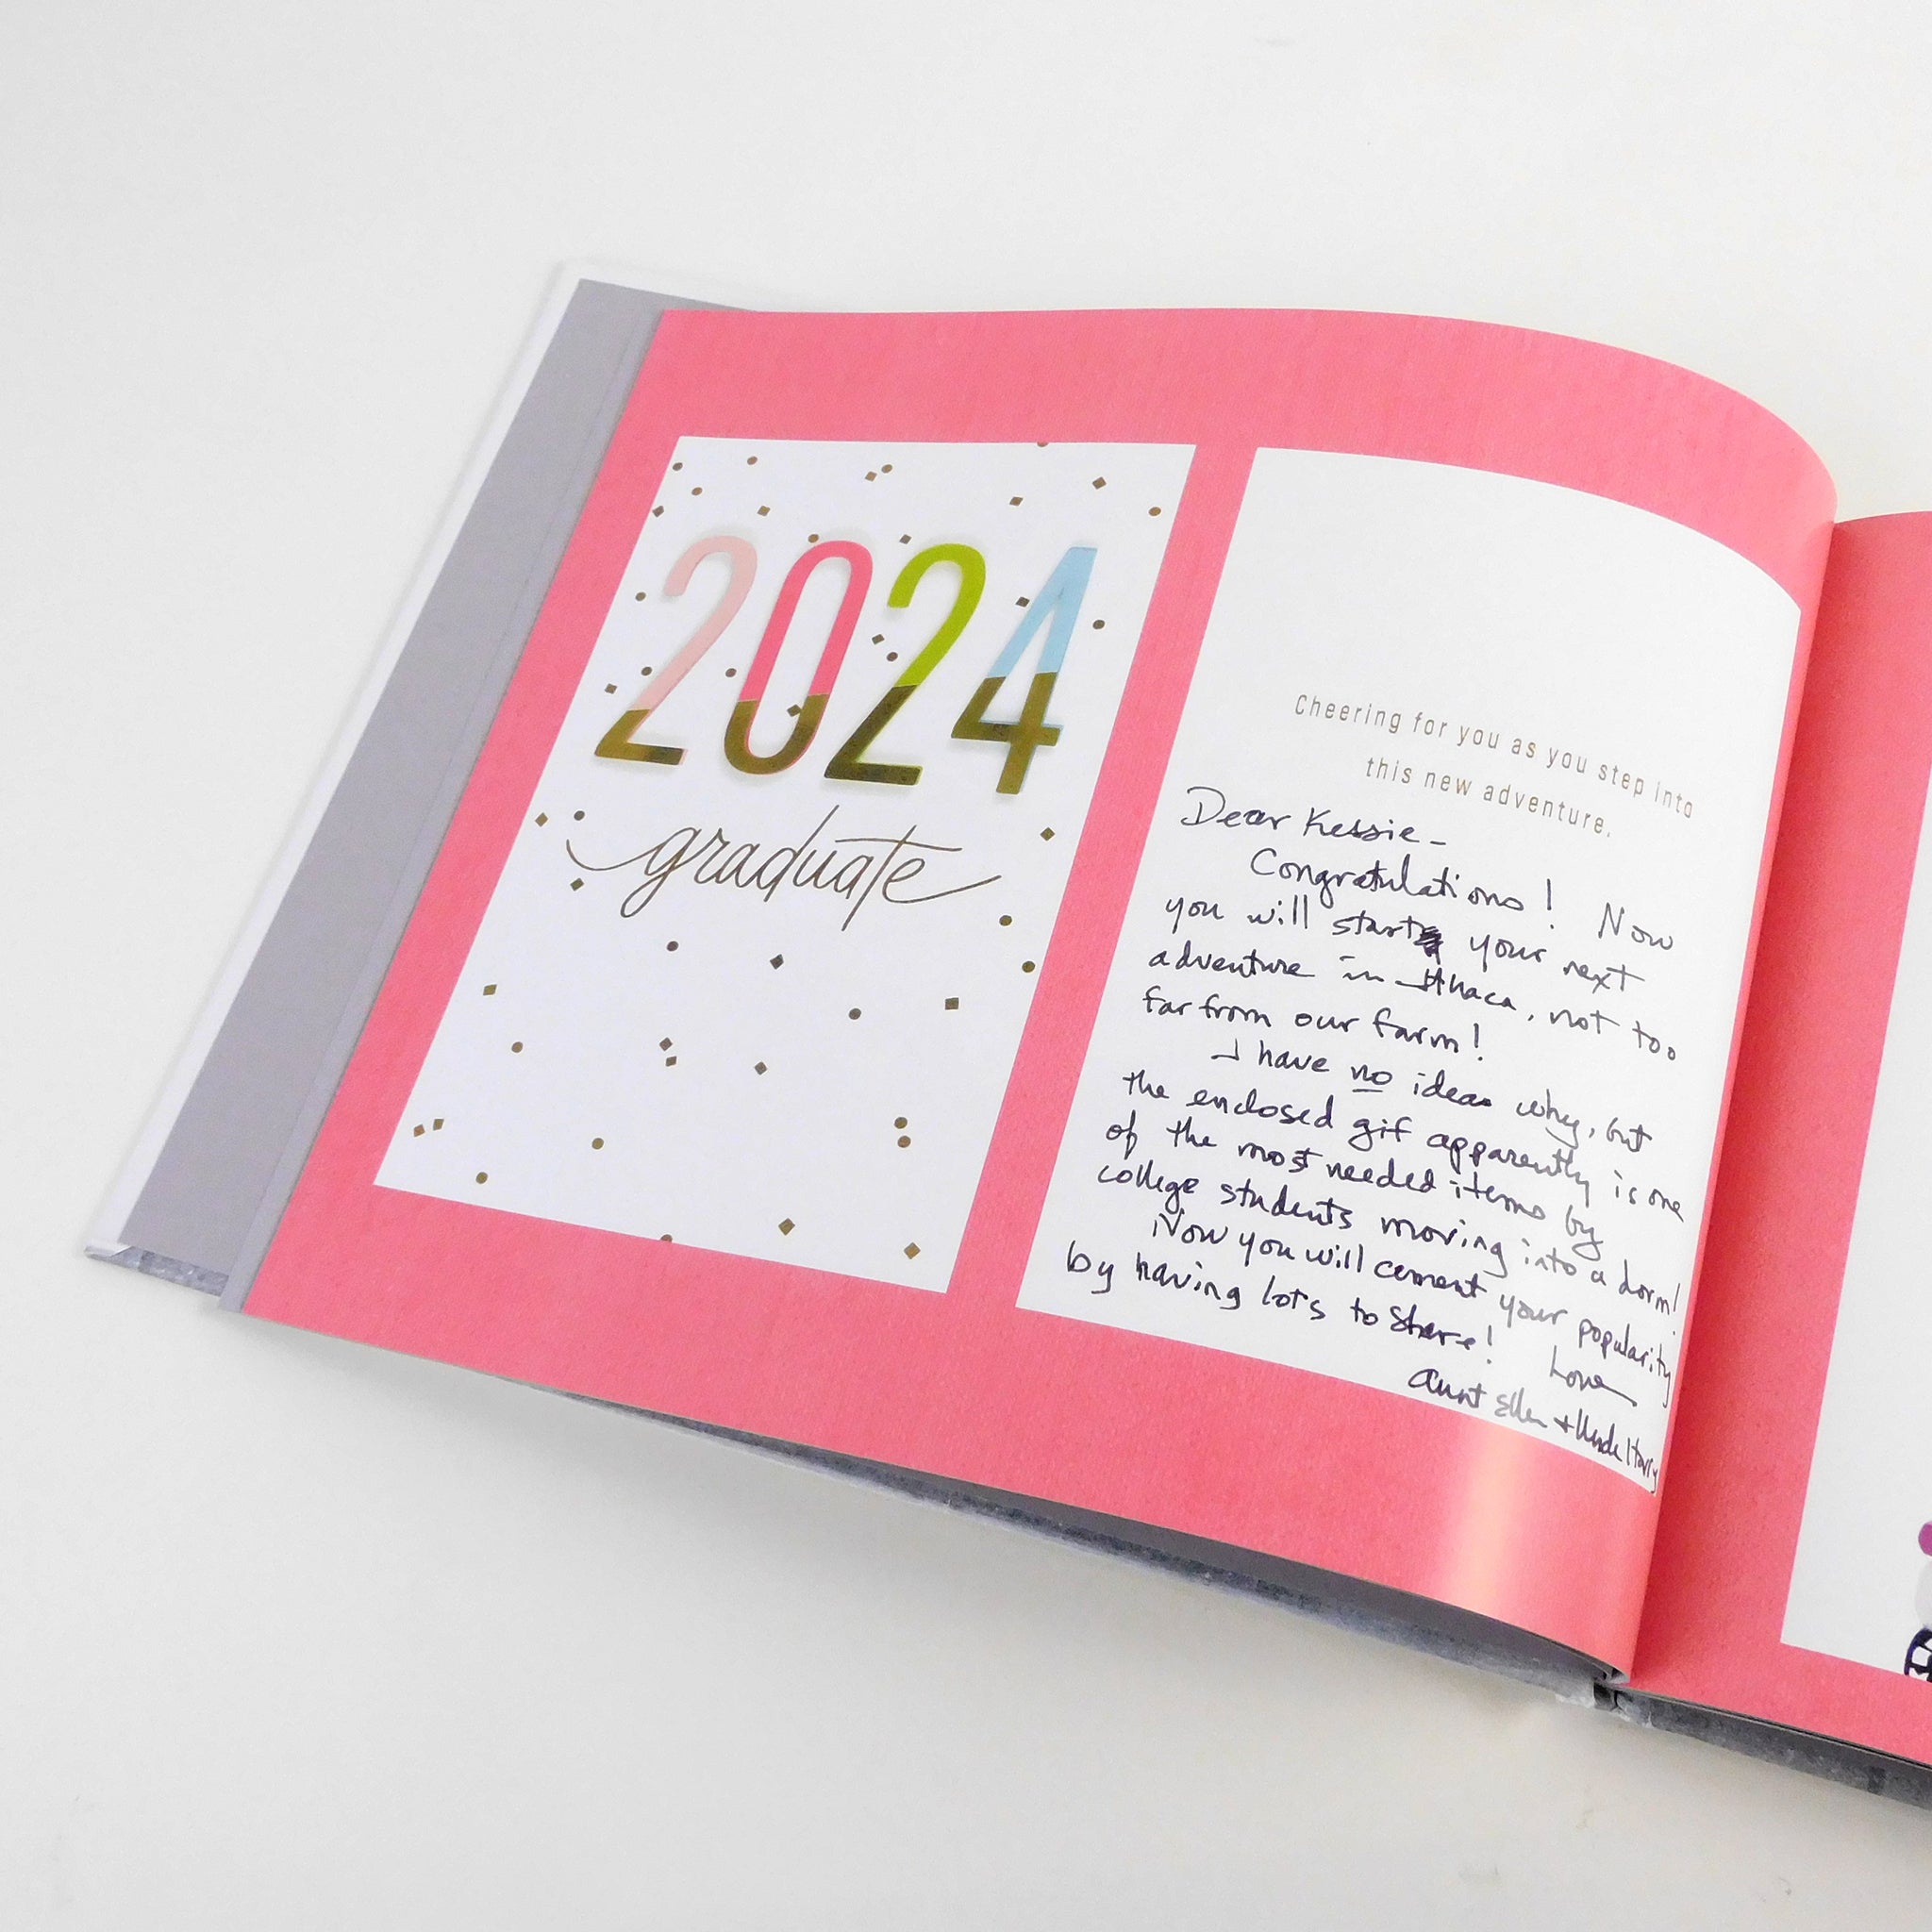 2024
graduate
Cheering for you as you step into
this new adventure.
Dear Kessie-
Congratulations! Now
you will start your next
adventure in Ithaca, not too
far from our farm!
I have no idea why, but
the enclosed gif apparently is one
of the most needed items by
college students moving into a dorm!
Now you will cement your popularity
by having lots to share!
Love
Aunt Ellen + Uncle Harry